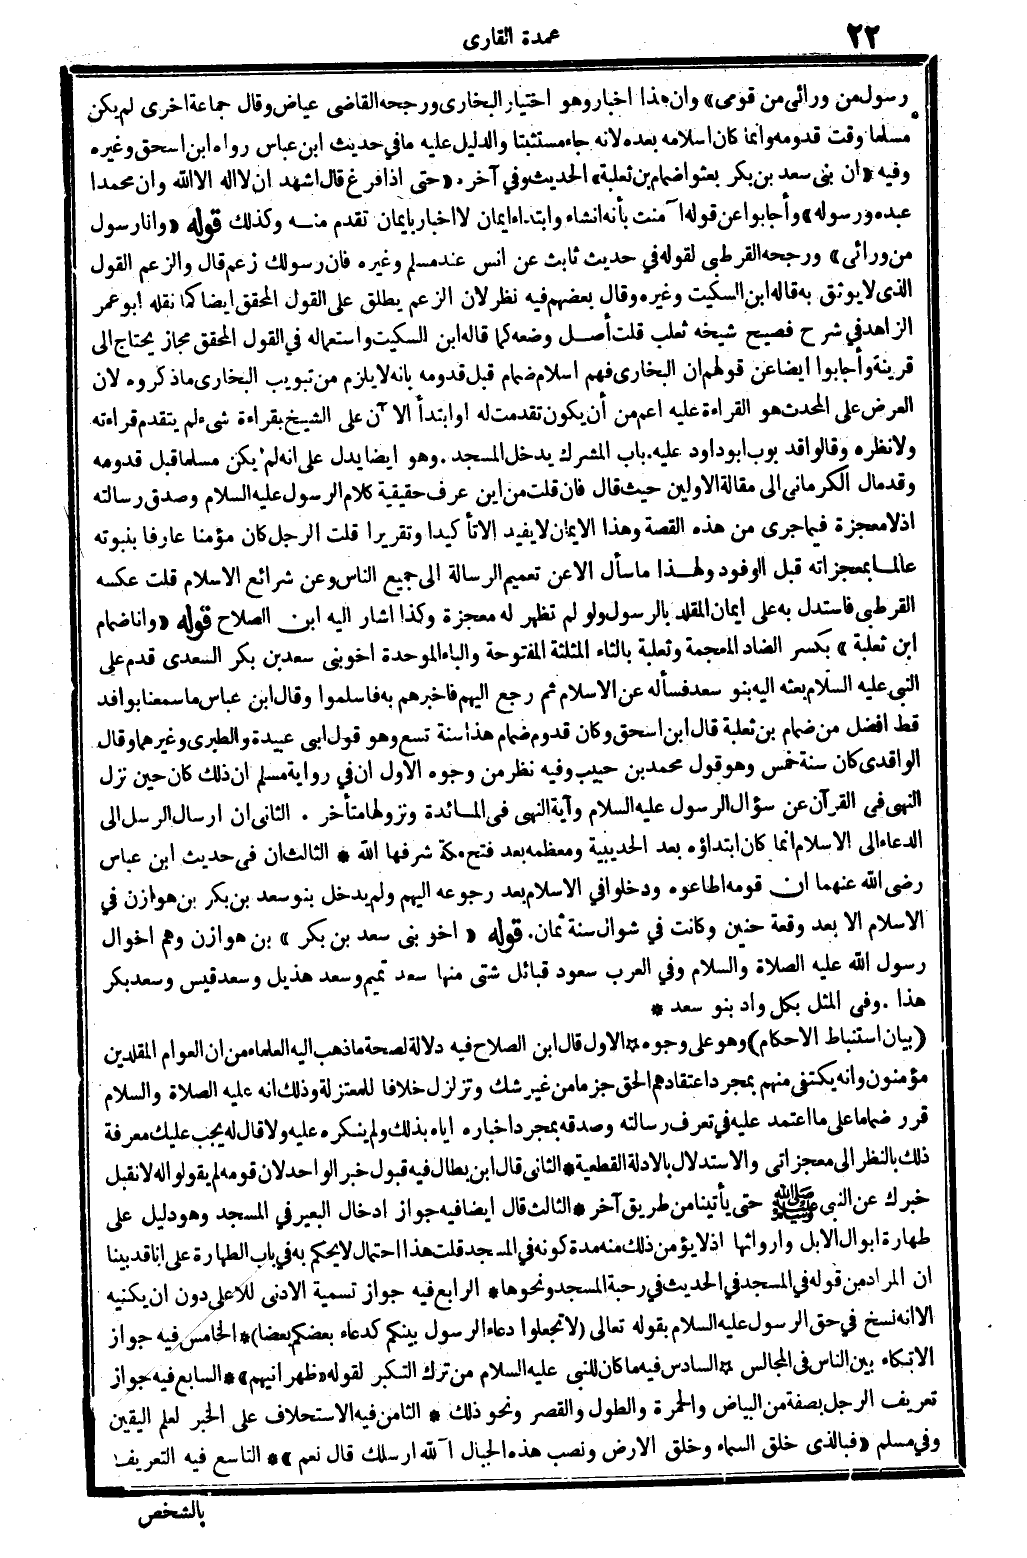 ٢٢
عمدة القارى
رسول من ورائى من قومى» وان هذا اخبار وهو اختيار البخارى ورجحه القاضى عياض وقال جماعة اخرى لم يكن
مسلما وقت قدومه وانما كان اسلامه بعده لانه جاء مستثبتا والدليل عليه ما في حديث ابن عباس رواه ابن اسحق وغيره
وفيه «ان بنى سعد بن بكر بعثوا ضمام بن ثعلبة» الحديث وفي آخره «حتى اذا فرغ قال اشهد ان لا اله الا الله وان محمدا
عبده ورسوله» وأجابوا عن قوله آمنت بأنه انشاء وابتداء ايمان لا اخبار بايمان تقدم منه وكذلك قوله «وانا رسول
من ورائى» ورجحه القرطبى لقوله في حديث ثابت عن انس عند مسلم وغيره فان رسولك زعم قال والزعم القول
الذى لا يوثق به قاله ابن السكيت وغيره وقال بعضهم فيه نظر لان الزعم يطلق على القول المحقق ايضا كما نقله ابو عمر
الزاهد في شرح فصيح شيخه ثعلب قلت أصل وضعه كما قاله ابن السكيت واستعماله في القول المحقق مجاز يحتاج الى
قرينة وأجابوا ايضا عن قولهم ان البخارى فهم اسلام ضمام قبل قدومه بانه لا يلزم من تبويب البخارى ما ذكروه لان
العرض على المحدث هو القراءة عليه اعم من أن يكون تقدمت له او ابتدأ الآن على الشيخ بقراءة شىء لم يتقدم قراءته
ولا نظره وقالوا قد بوب ابو داود عليه. باب المشرك يدخل المسجد. وهو ايضا يدل على انه لم يكن مسلما قبل قدومه
وقد مال الكرمانى الى مقالة الاولين حيث قال فان قلت من اين عرف حقيقية كلام الرسول عليه السلام وصدق رسالته
اذ لا معجزة فيما جرى من هذه القصة وهذا الايمان لا يفيد الا تأكيدا وتقريرا قلت الرجل كان مؤمنا عارفا بنبوته
عالما بمعجزاته قبل الوفود ولهذا ما سأل الا عن تعميم الرسالة الى جميع الناس وعن شرائع الاسلام قلت عكسه
القرطبى فاستدل به على ايمان المقلد بالرسول ولو لم تظهر له معجزة وكذا اشار اليه ابن الصلاح قوله «وانا ضمام
ابن ثعلبة» بكسر الضاد المعجمة وثعلبة بالثاء المثلثة المفتوحة والباء الموحدة اخو بنى سعد بن بكر السعدى قدم على
النبى عليه السلام بعثه اليه بنو سعد فسأله عن الاسلام ثم رجع اليهم فاخبرهم به فاسلموا وقال ابن عباس ما سمعنا بوافد
قط افضل من ضمام بن ثعلبة قال ابن اسحق وكان قدوم ضمام هذا سنة تسع وهو قول ابى عبيدة والطبرى وغيرهما وقال
الواقدى كان سنة خمس وهو قول محمد بن حبيب وفيه نظر من وجوه الاول ان في رواية مسلم ان ذلك كان حين نزل
النهى فى القرآن عن سؤال الرسول عليه السلام وآية النهى فى المائدة ونزولها متأخر . الثانى ان ارسال الرسل الى
الدعاء الى الاسلام انما كان ابتداؤه بعد الحديبية ومعظمه بعد فتح مكة شرفها الله * الثالث ان فى حديث ابن عباس
رضى الله عنهما ان قومه اطاعوه ودخلوا في الاسلام بعد رجوعه اليهم ولم يدخل بنو سعد بن بكر بن هوازن في
الاسلام الا بعد وقعة حنين وكانت في شوال سنة ثمان. قوله «اخو بنى سعد بن بكر» بن هوازن وهم اخوال
رسول الله عليه الصلاة والسلام وفي العرب سعود قبائل شتى منها سعد تميم وسعد هذيل وسعد قيس وسعد بكر
هذا . وفى المثل بكل واد بنو سعد *
(بيان استنباط الاحكام) وهو على وجوه * الاول قال ابن الصلاح فيه دلالة لصحة ما ذهب اليه العلماء من ان العوام المقلدين
مؤمنون وانه يكتفى منهم بمجرد اعتقادهم الحق جزما من غير شك وتزلزل خلافا للمعتزلة وذلك انه عليه الصلاة والسلام
قرر ضماما على ما اعتمد عليه في تعرف رسالته وصدقه بمجرد اخباره اياه بذلك ولم ينكره عليه ولا قال له يجب عليك معرفة
ذلك بالنظر الى معجزاتى والاستدلال بالادلة القطعية * الثانى قال ابن بطال فيه قبول خبر الواحد لان قومه لم يقولوا له لا نقبل
خبرك عن النبى صلى الله عليه وسلم حتى يأتينا من طريق آخر * الثالث قال ايضا فيه جواز ادخال البعير في المسجد وهو دليل على
طهارة ابوال الابل واروائها اذ لا يؤمن ذلك منه مدة كونه في المسجد قلت هذا احتمال لا يحكم به في باب الطهارة على انا قد بينا
ان المراد من قوله في المسجد في الحديث في رحبة المسجد ونحوها * الرابع فيه جواز تسمية الادنى للاعلى دون ان يكنيه
الا انه نسخ في حق الرسول عليه السلام بقوله تعالى (لا تجعلوا دعاء الرسول بينكم كدعاء بعضكم بعضا) * الخامس فيه جواز
الاتكاء بين الناس فى المجالس * السادس فيه ما كان للنبى عليه السلام من ترك التكبر لقوله «ظهرانيهم» * السابع فيه جواز
تعريف الرجل بصفة من البياض والحمرة والطول والقصر ونحو ذلك * الثامن فيه الاستحلاف على الخبر لعلم اليقين
وفي مسلم «فبالذى خلق السماء وخلق الارض ونصب هذه الجبال آلله ارسلك قال نعم» * التاسع فيه التعريف
بالشخص